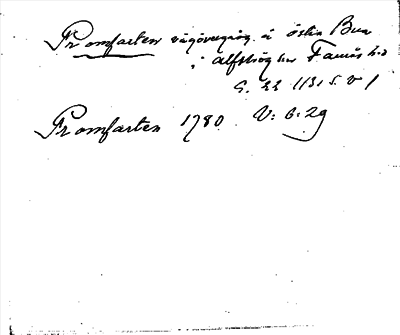 Promfarten vägövergång å östra Bua
i Alfshög sn Faurås hd
G. 22 1131 S. V 1
Promfarten 1780 V: 6: 29